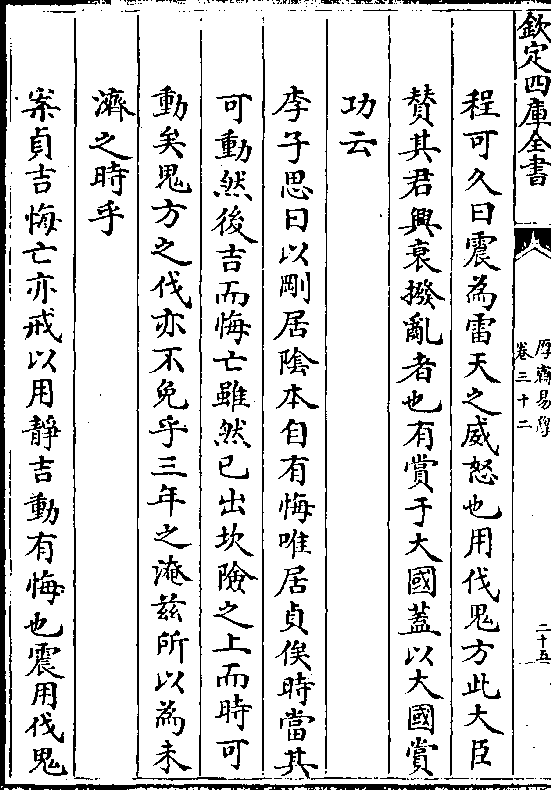 欽定四庫全書
厚齋易學
卷三十二
二十五
程可久曰震為雷天之威怒也用伐鬼方此大臣
賛其君興衰撥亂者也有賞于大國蓋以大國賞
功云
李子思曰以剛居隂本自有悔唯居貞俟時當其
可動然後吉而悔亡雖然已出坎險之上而時可
動矣鬼方之伐亦不免乎三年之淹兹所以為未
濟之時乎
案貞吉悔亡亦戒以用靜吉動有悔也震用伐鬼